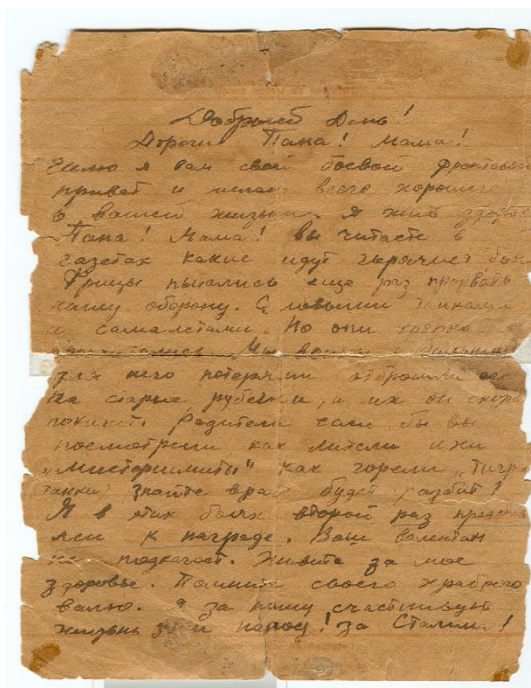 Добрый День!
Дороги Папа! Мама!
я вам свой боевой фронтовой
привет и желаю всего хорошего
в вашей жизни. Я жив здоров
Папа! Мама! вы читаете в
газетах какие идут горячие бои
Фрицы пытались еще раз прорвать
нашу оборону. С новыми танками
и самолетами. Но они крепко
Мы
для него потерями отбросили его
на старые рубежи, и их он скоро
покинет. Родители если бы вы
посмотрели как летели ихи
"Мистершмиты" как горели "Тигры
(танки) знайте враг будет разбит!
Я в этих боях второй раз представ
лен к награде. Ваш Валентин
не подкачает. Живите за мое
здоровье. Помните своего храброго
валю. я за нашу счастливую
жизнь наш народ! за Сталина!